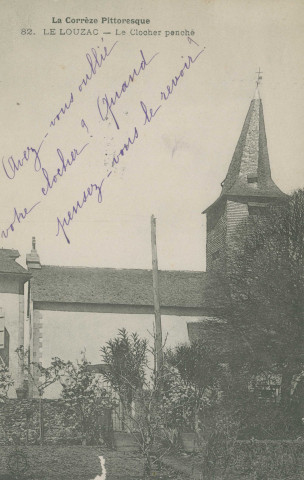 La Corrèze Pittoresque
82. LE LOUZAC — Le Clocher penché
Avez-vous oublié
votre clocher? Quand
pensez-vous le revoir?